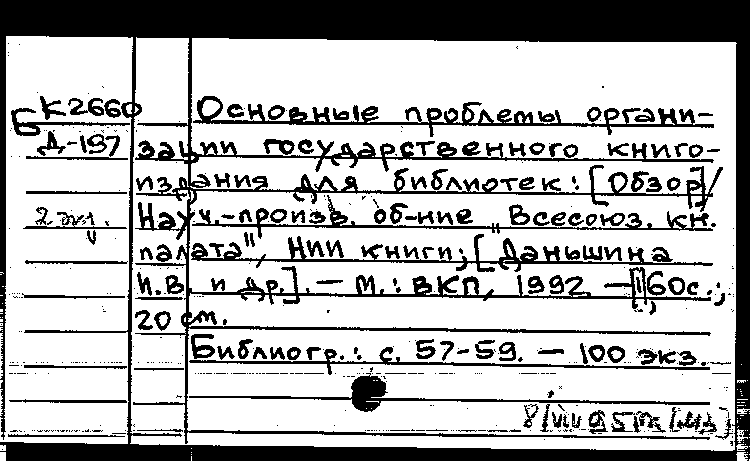 Б К2660
Д-197
Основные проблемы органи-
зации государственного книго-
издания для библиотек: [Обзор]/
2 экз.
Науч.-произв. об-ние "Всесоюз. кн.
палата", НИИ книги; [Даньшина
И.В. и др.]. — М.: ВКП, 1992. — 60с.;
20 см.
Библиогр.: с. 57-59. — 100 экз.